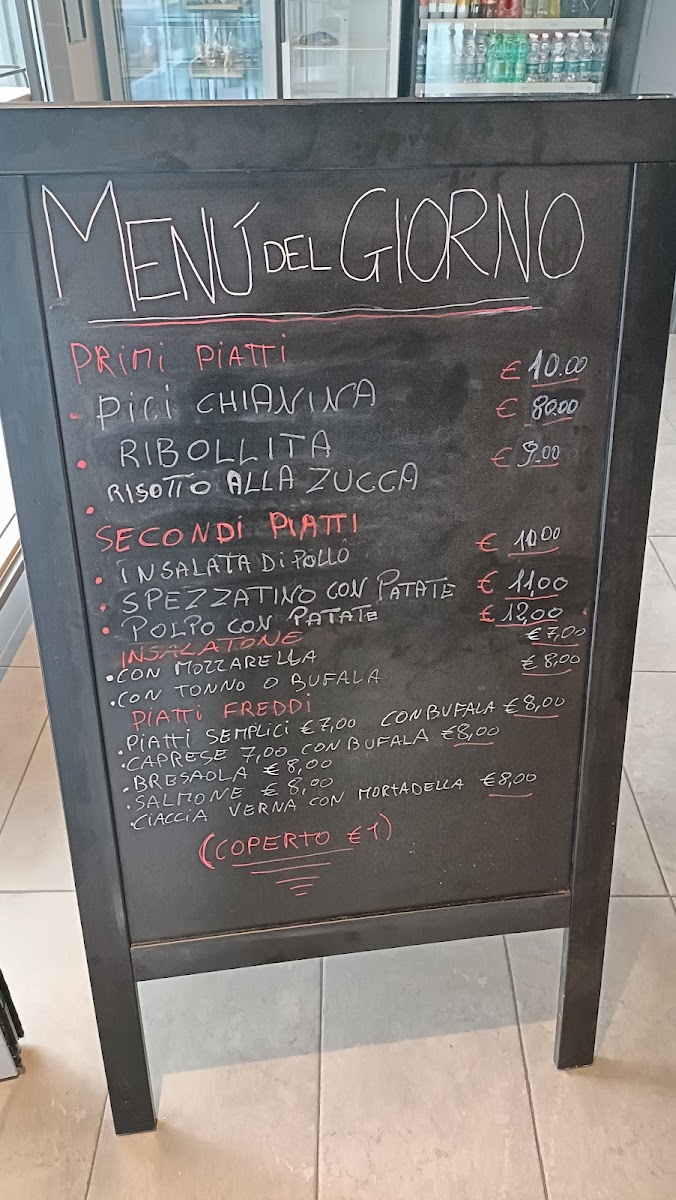 MENÚ DEL GIORNO
PRIMI PIATTI
PICI CHIANINA € 10.00
RIBOLLITA € 80.00
RISOTTO ALLA ZUCCA € 9.00
SECONDI PIATTI
INSALATA DI POLLO € 10.00
SPEZZATINO CON PATATE € 11,00
POLPO CON PATATE € 12,00
INSALATONE
CON MOZZARELLA € 7,00
CON TONNO O BUFALA € 8,00
PIATTI FREDDI
PIATTI SEMPLICI € 7,00 CON BUFALA € 8,00
CAPRESE 7,00 CON BUFALA € 8,00
BRESAOLA € 8,00
SALMONE € 8,00
CIACCIA VERNA CON MORTADELLA € 8,00
(COPERTO € 1)